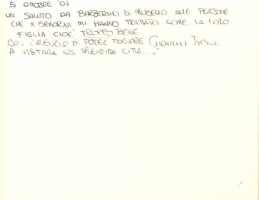 5 OTTOBRE '07
UN SALUTO DA BARBERINO DI MUGELLO ALLE PERSONE
CHE X 5 GIORNI MI HANNO TRATTATO COME LA LORO
FIGLIA CIOE' TROPPO BENE
CON L'AUGURIO DI POTER TORNARE
A VISITARE LA SPLENDIDA CITTA'..."